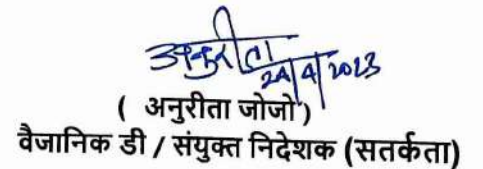 अनुरीता
24/4/2023
( अनुरीता जोजो )
वैजानिक डी / संयुक्त निदेशक (सतर्कता)